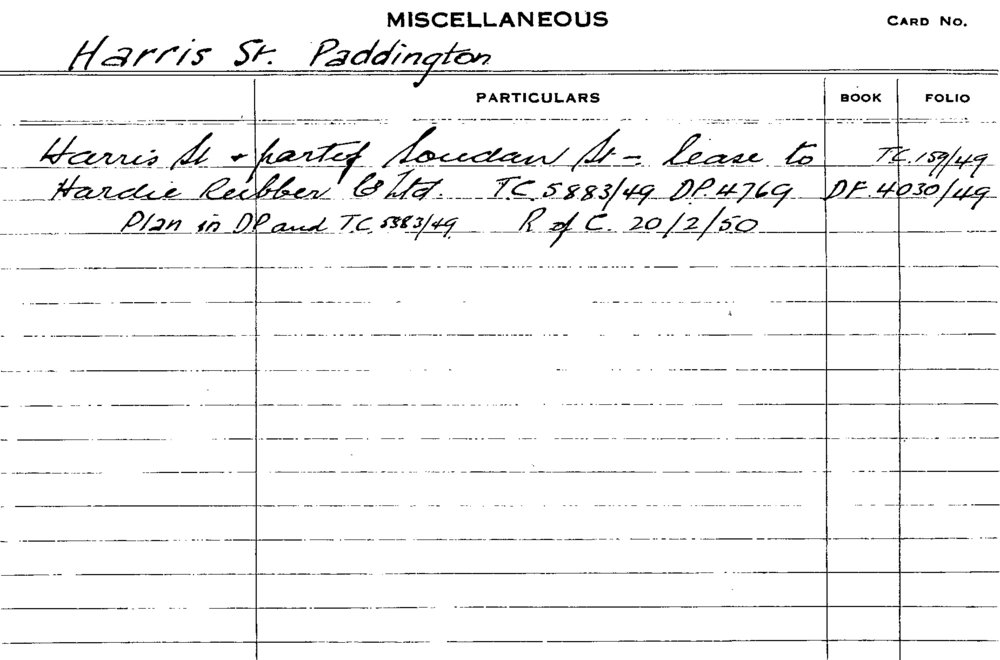 MISCELLANEOUS CARD NO.
Harris St. Paddington
PARTICULARS BOOK FOLIO
Harris St + part of Soudan St - lease to T.C. 159/49
Hardie Rubber Co Ltd. T.C. 5883/49 DP. 4769 DF. 4030/49
Plan in DP and T.C. 5883/49 R of C. 20/2/50